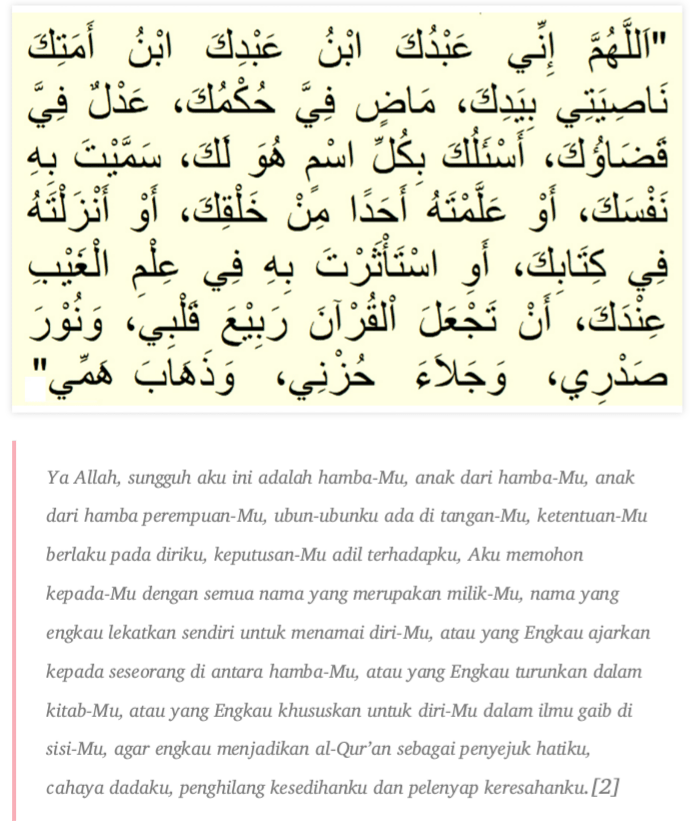 "اَللَّهُمَّ إِنِّي عَبْدُكَ ابْنُ عَبْدِكَ ابْنُ أَمَتِكَ
نَاصِيَتِي بِيَدِكَ، مَاضٍ فِيَّ حُكْمُكَ، عَدْلٌ فِيَّ
قَضَاؤُكَ، أَسْئَلُكَ بِكُلِّ اسْمٍ هُوَ لَكَ، سَمَّيْتَ بِهِ
نَفْسَكَ، أَوْ عَلَّمْتَهُ أَحَدًا مِنْ خَلْقِكَ، أَوْ أَنْزَلْتَهُ
فِي كِتَابِكَ، أَوِ اسْتَأْثَرْتَ بِهِ فِي عِلْمِ الْغَيْبِ
عِنْدَكَ، أَنْ تَجْعَلَ الْقُرْآنَ رَبِيْعَ قَلْبِي، وَنُوْرَ
صَدْرِي، وَجَلاَءَ حُزْنِي، وَذَهَابَ هَمِّي"
Ya Allah, sungguh aku ini adalah hamba-Mu, anak dari hamba-Mu, anak
dari hamba perempuan-Mu, ubun-ubunku ada di tangan-Mu, ketentuan-Mu
berlaku pada diriku, keputusan-Mu adil terhadapku, Aku memohon
kepada-Mu dengan semua nama yang merupakan milik-Mu, nama yang
engkau lekatkan sendiri untuk menamai diri-Mu, atau yang Engkau ajarkan
kepada seseorang di antara hamba-Mu, atau yang Engkau turunkan dalam
kitab-Mu, atau yang Engkau khususkan untuk diri-Mu dalam ilmu gaib di
sisi-Mu, agar engkau menjadikan al-Qur’an sebagai penyejuk hatiku,
cahaya dadaku, penghilang kesedihanku dan pelenyap keresahanku.[2]